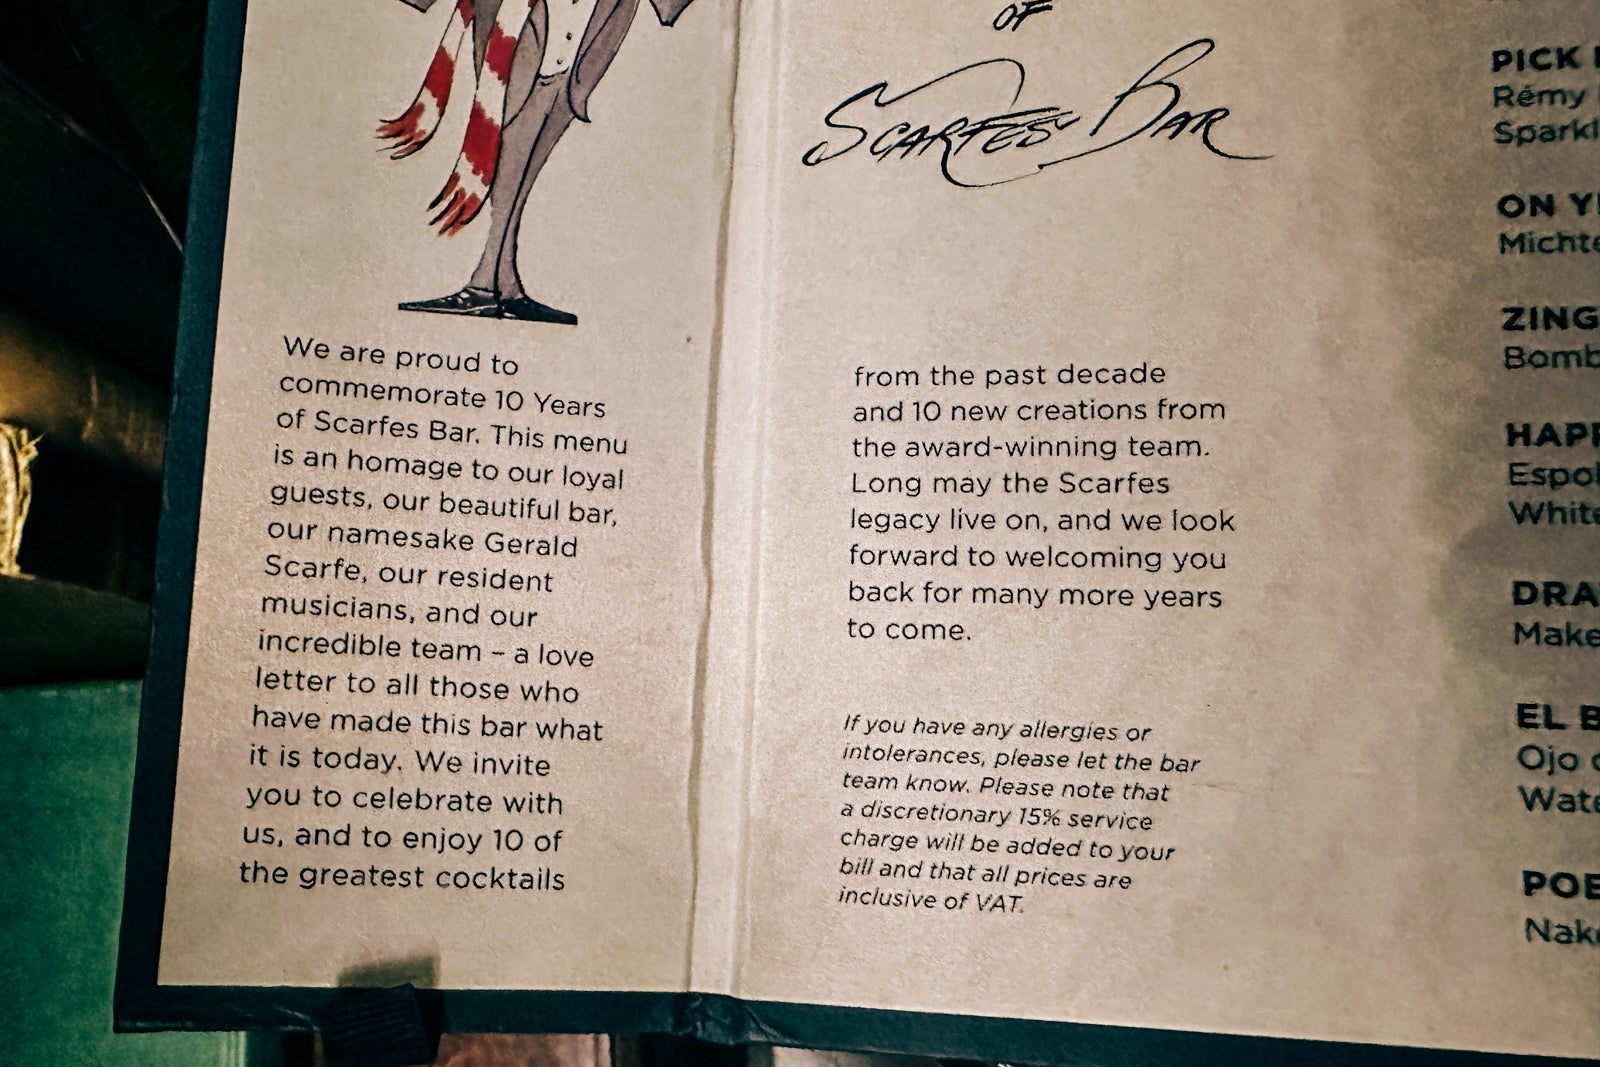 We are proud to
commemorate 10 Years
of Scarfes Bar. This menu
is an homage to our loyal
guests, our beautiful bar,
our namesake Gerald
Scarfe, our resident
musicians, and our
incredible team – a love
letter to all those who
have made this bar what
it is today. We invite
you to celebrate with
us, and to enjoy 10 of
the greatest cocktails
OF
SCARFES BAR
from the past decade
and 10 new creations from
the award-winning team.
Long may the Scarfes
legacy live on, and we look
forward to welcoming you
back for many more years
to come.
If you have any allergies or
intolerances, please let the bar
team know. Please note that
a discretionary 15% service
charge will be added to your
bill and that all prices are
inclusive of VAT.
PICK
Rémy
ON
EL
Ojo